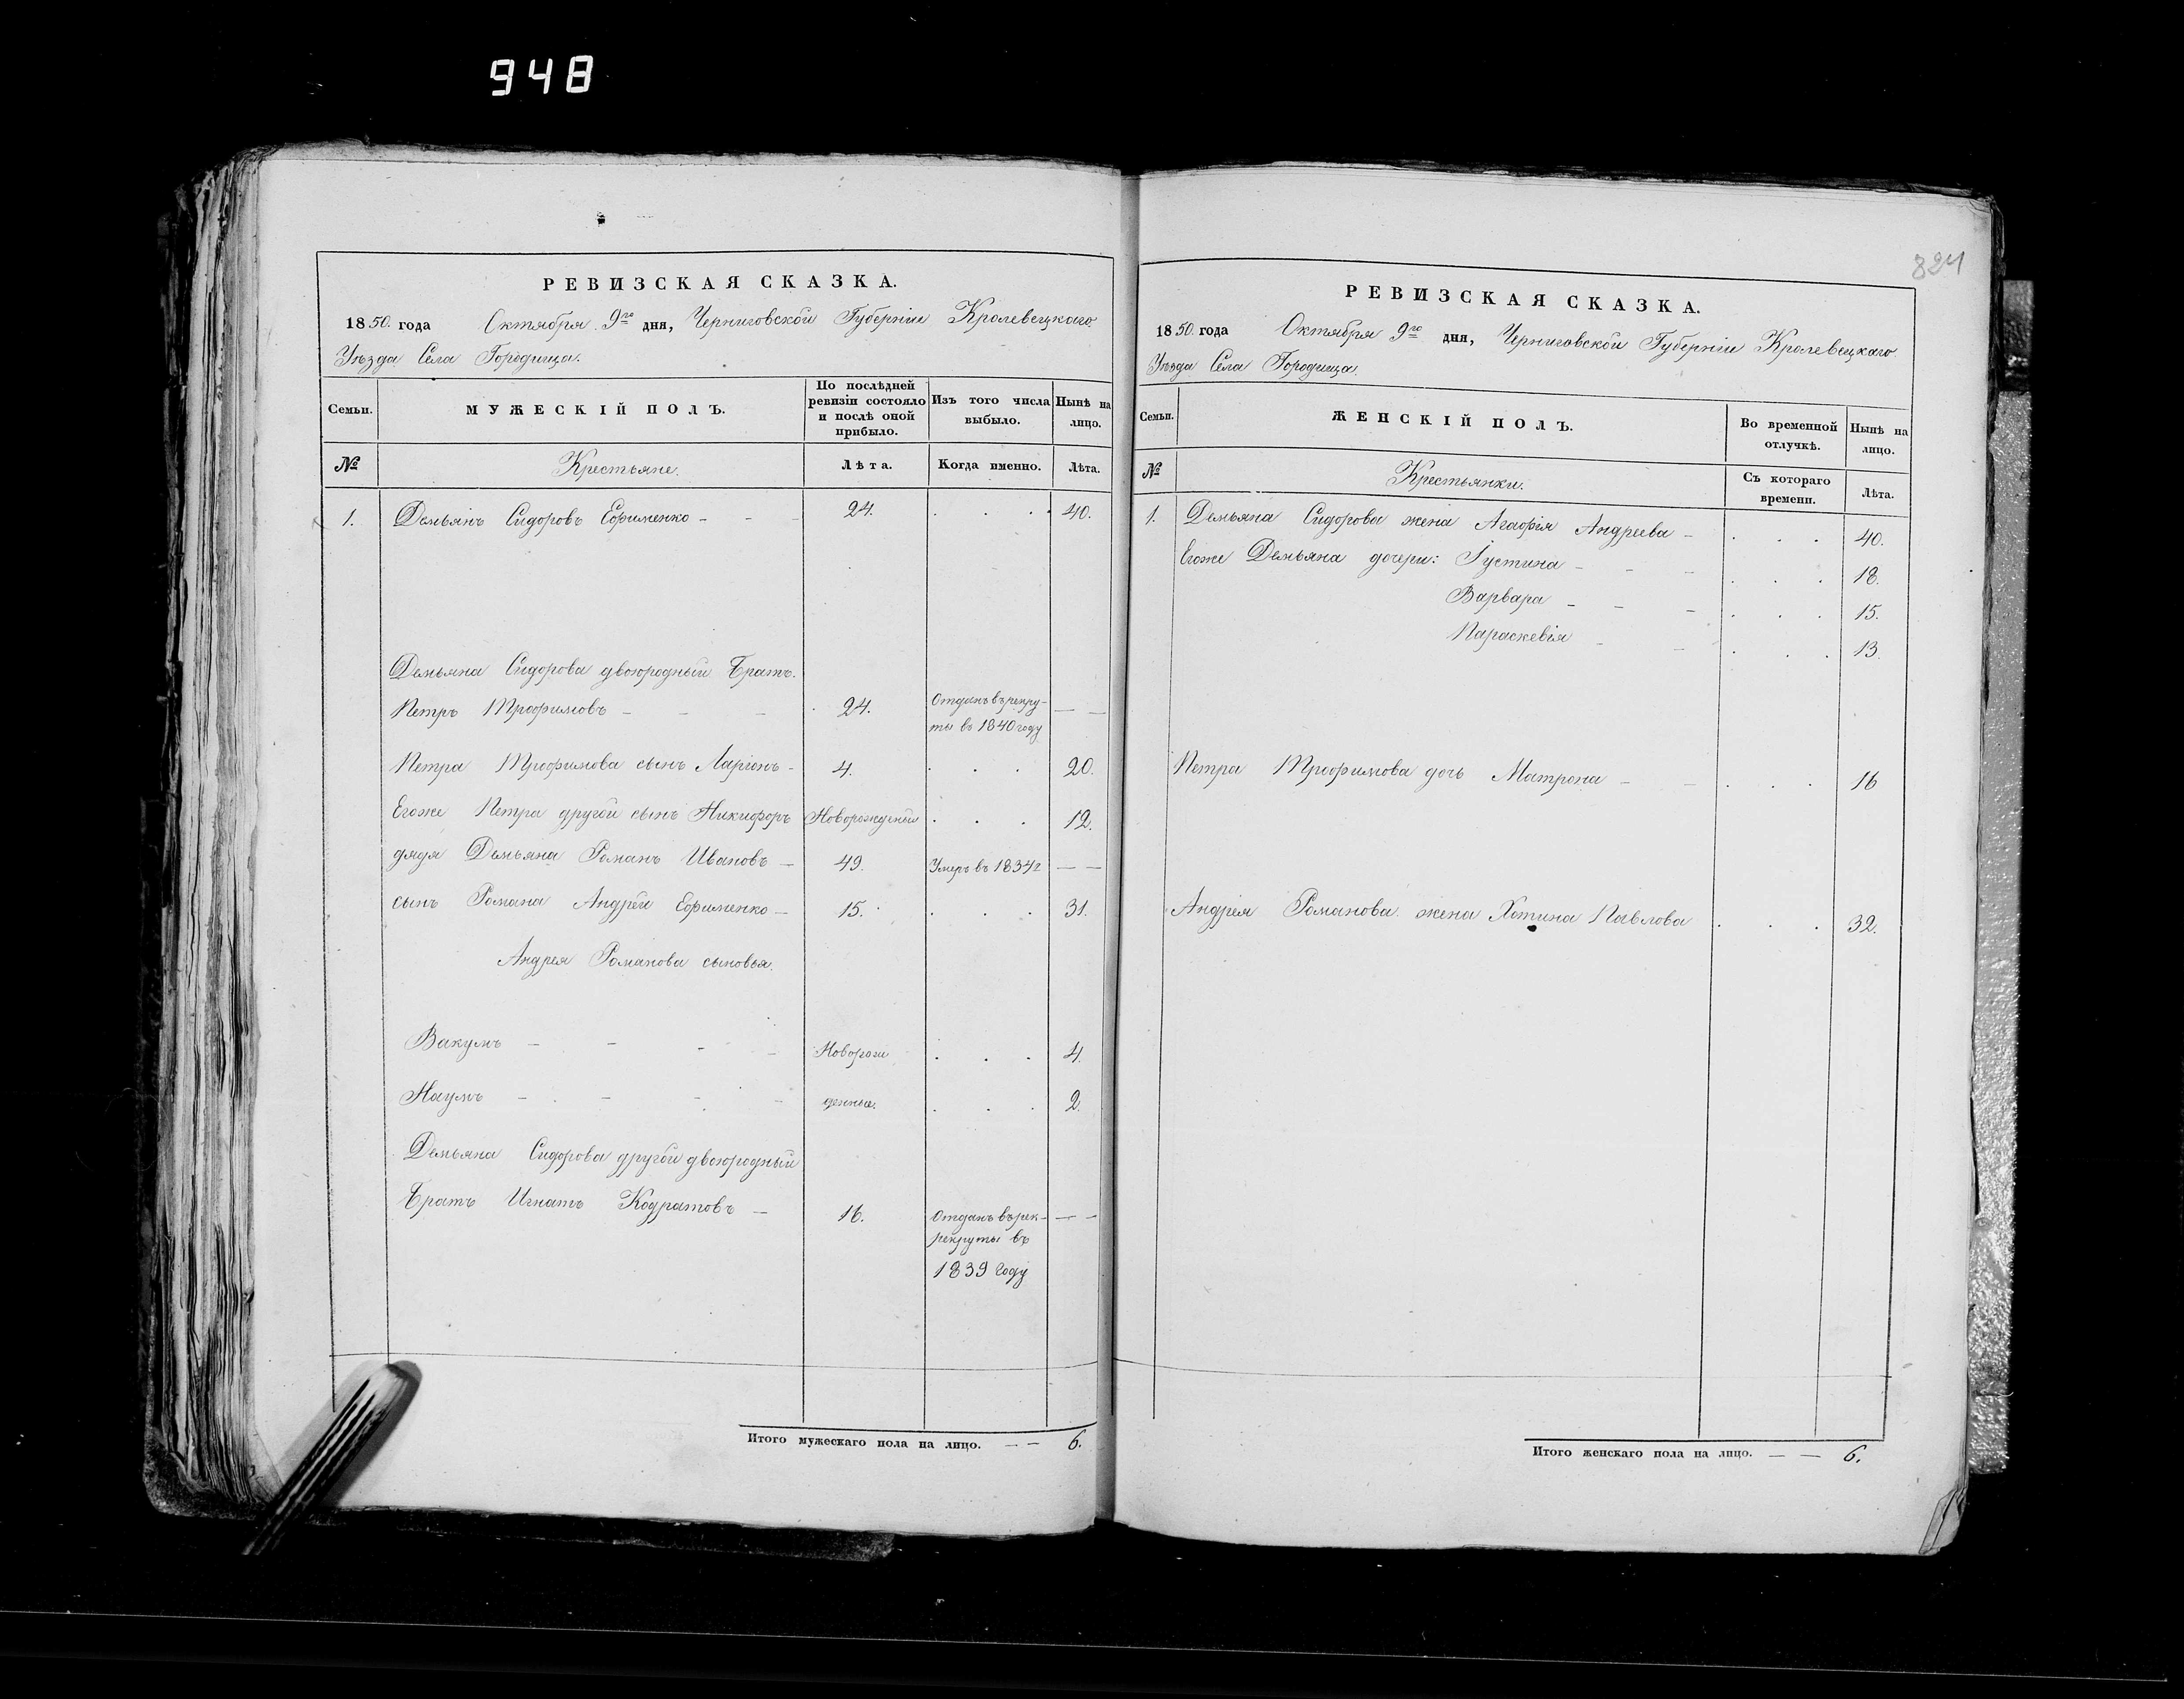 948
РЕВИЗСКАЯ СКАЗКА.
1850. года Октября 9го дня, Черниговской Губерніи Кролевецкаго
Уѣзда Села Городища.
Семьи.
МУЖЕСКІЙ ПОЛЪ.
По послѣдней
ревизіи состояло
и послѣ оной
прибыло.
Изъ того числа
выбыло.
Нынѣ на
лицо.
№
Крестьяне.
Лѣта.
Когда именно.
Лѣта.
1. Демьянъ Сидоровъ Ефименко - - - 24. . . . 40.
Демьяна Сидорова двоюродный Братъ.
Петръ Трофимовъ - - - 24. Отданъ въ рекру-
ты въ 1840 году — —
Петра Трофимова сынъ Ларіонъ - 4. . . . 20.
Егоже Петра другой сынъ Никифоръ Новорожденый . . . 12.
дядя Демьяна Романъ Ивановъ - 49. Умеръ въ 1834г — —
сынъ Романа Андрей Ефименко - 15. . . . 31.
Андрея Романова сыновья.
Вакумъ - - - - Новорож . . . 4.
Наумъ - - - - денные. . . . 2.
Демьяна Сидорова другой двоюродный
Братъ Игнатъ Кодратовъ - 16. Отданъ въ рек- — —
рекруты въ
1839 году
Итого мужескаго пола на лицо. — — 6.
324
РЕВИЗСКАЯ СКАЗКА.
1850. года Октября 9го дня, Черниговской Губерніи Кролевецкаго
Уѣзда Села Городища.
Семьи.
ЖЕНСКІЙ ПОЛЪ.
Во временной
отлучкѣ.
Нынѣ на
лицо.
№
Крестьянки.
Съ котораго
времени.
Лѣта.
1. Демьяна Сидорова жена Агафія Андреева - . . . 40.
Егоже Демьяна дочери: Іустина - - - . . . 18.
Варвара - - - . . . 15.
Параскевія - - . . . 13.
Петра Трофимова дочь Матрона - - . . . 16
Андрея Романова жена Хотина Павлова . . . 32.
Итого женскаго пола на лицо. — — 6.